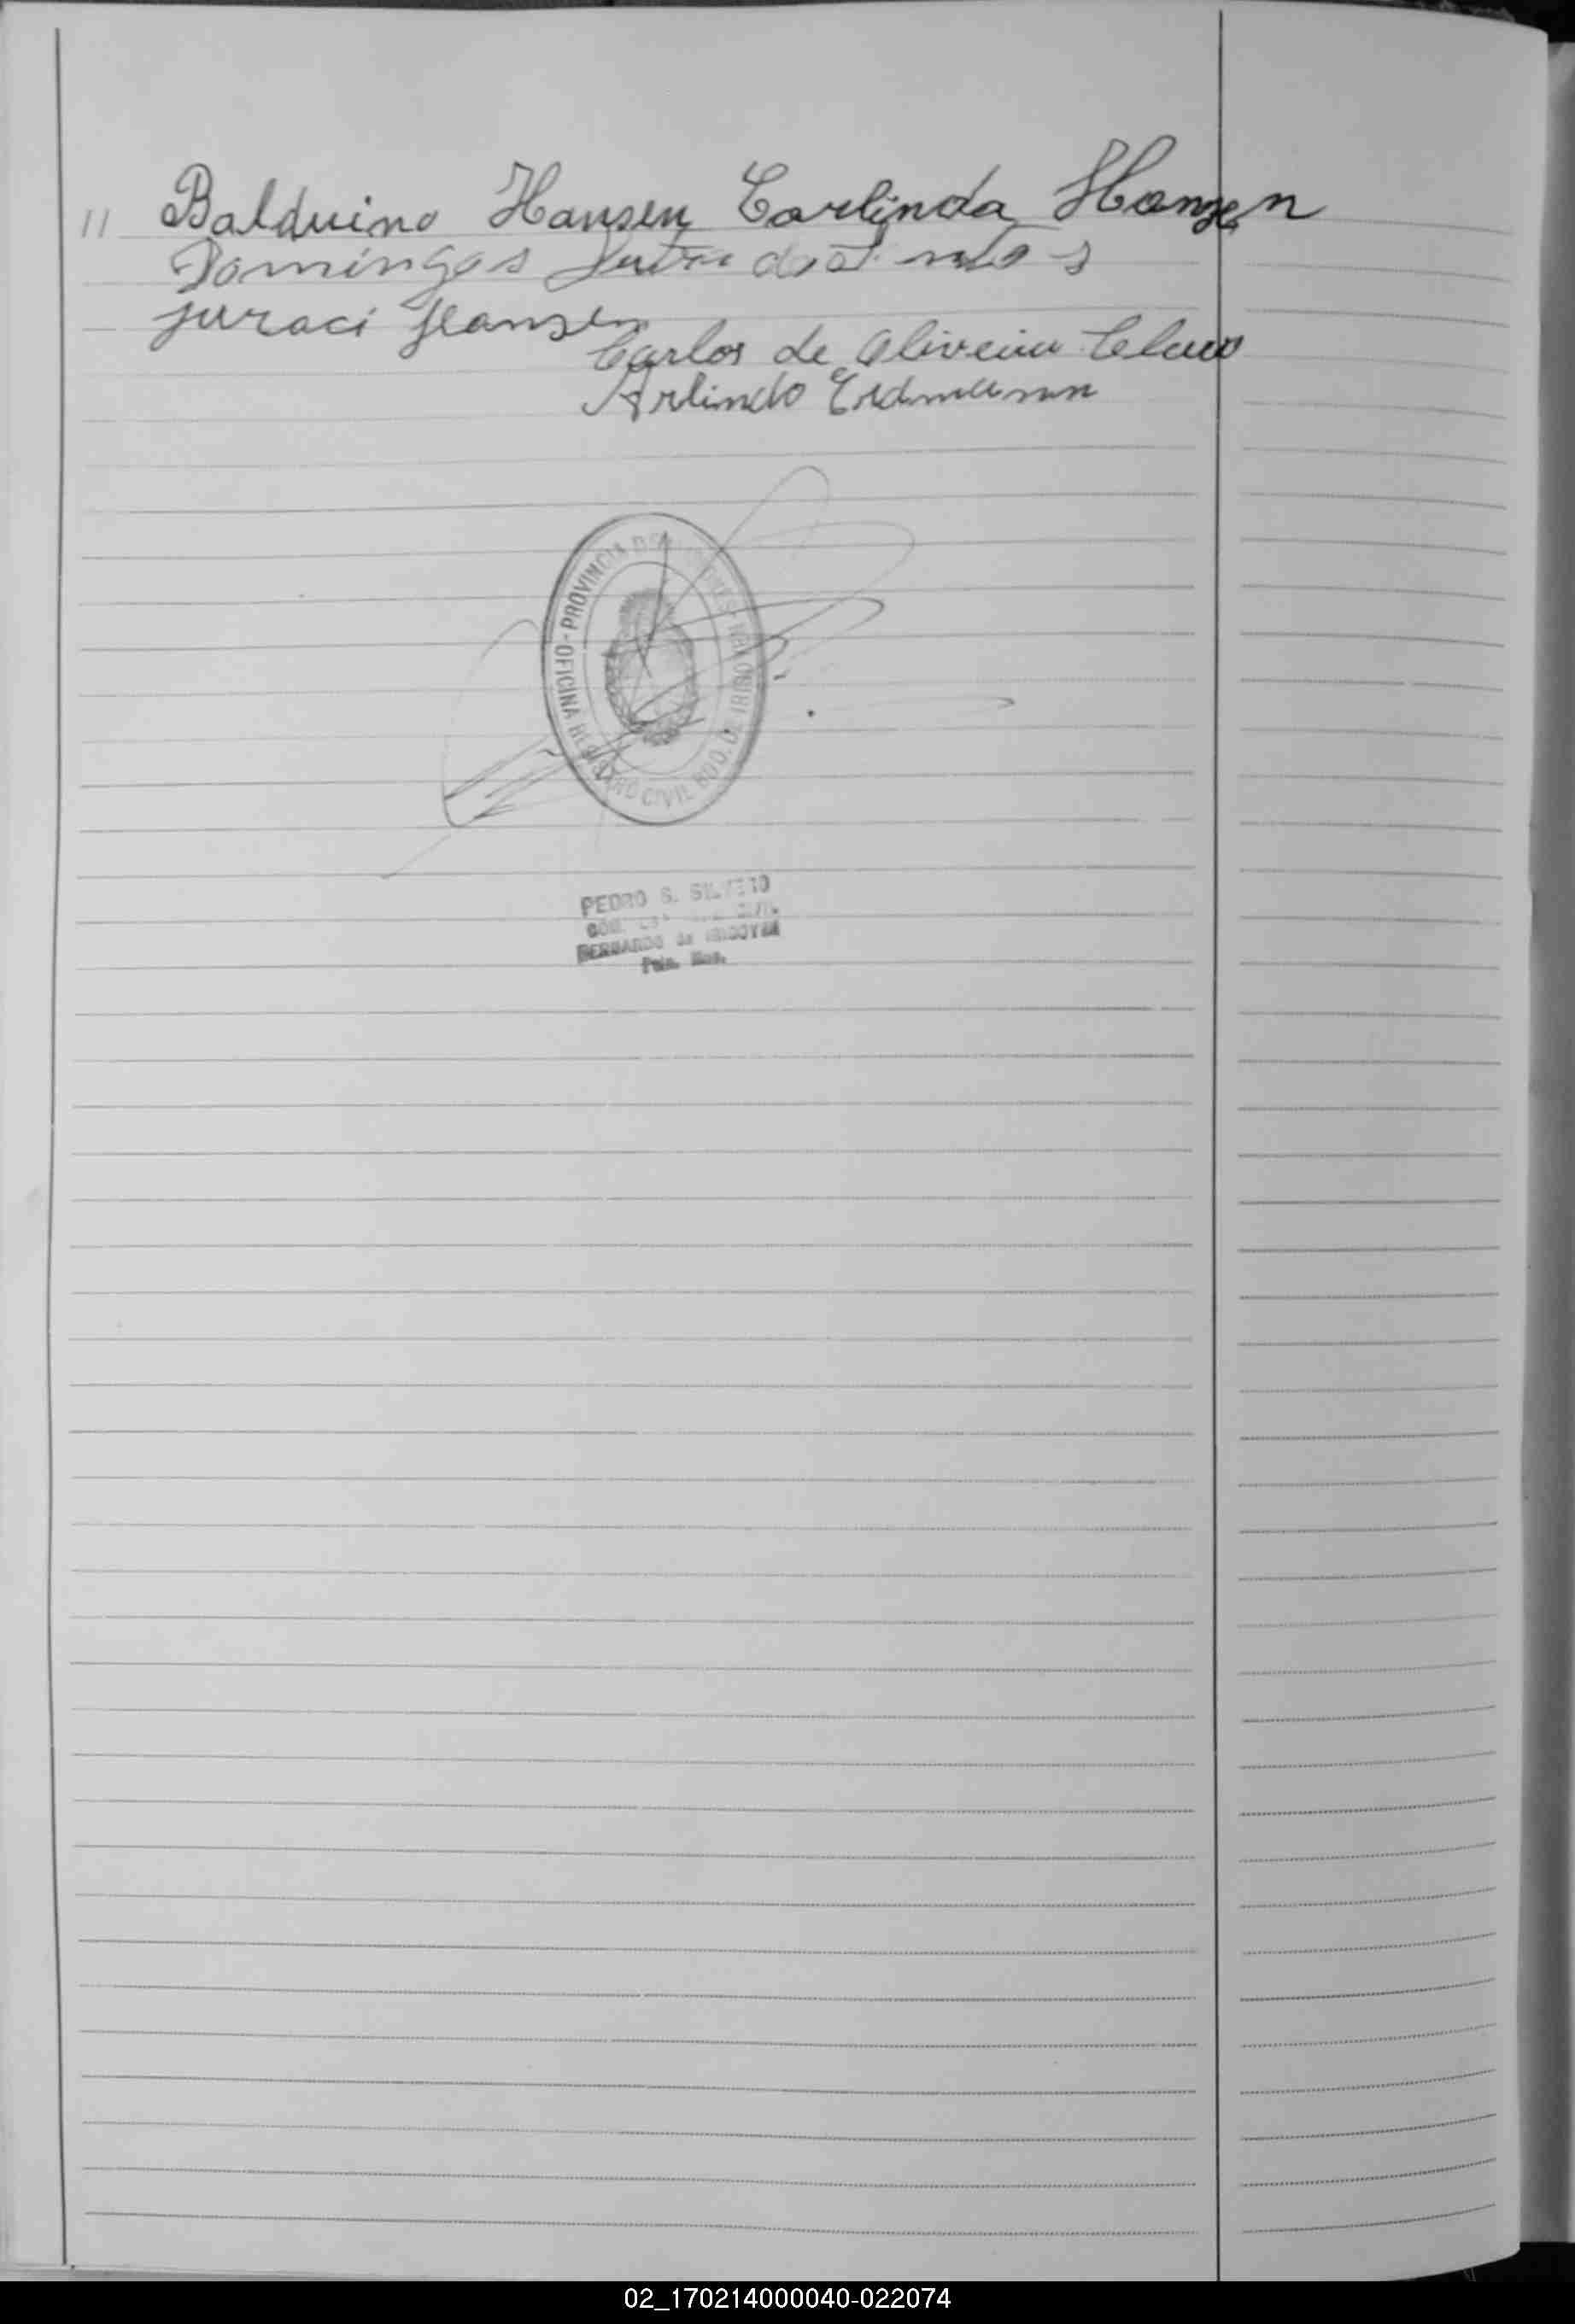 11 Balduino Hansen Carlinda Hansen
Domingos dos
juraci Hansen
Carlos de Oliveira
Arlindo Erdmann
OFICINA REGISTRO CIVIL BDO. DE IRIGOYEN - PROVINCIA DE MISIONES
PEDRO S.
CIVIL
BERNARDO de IRIGOYEN
Pcia. Mnes.
02_170214000040-022074